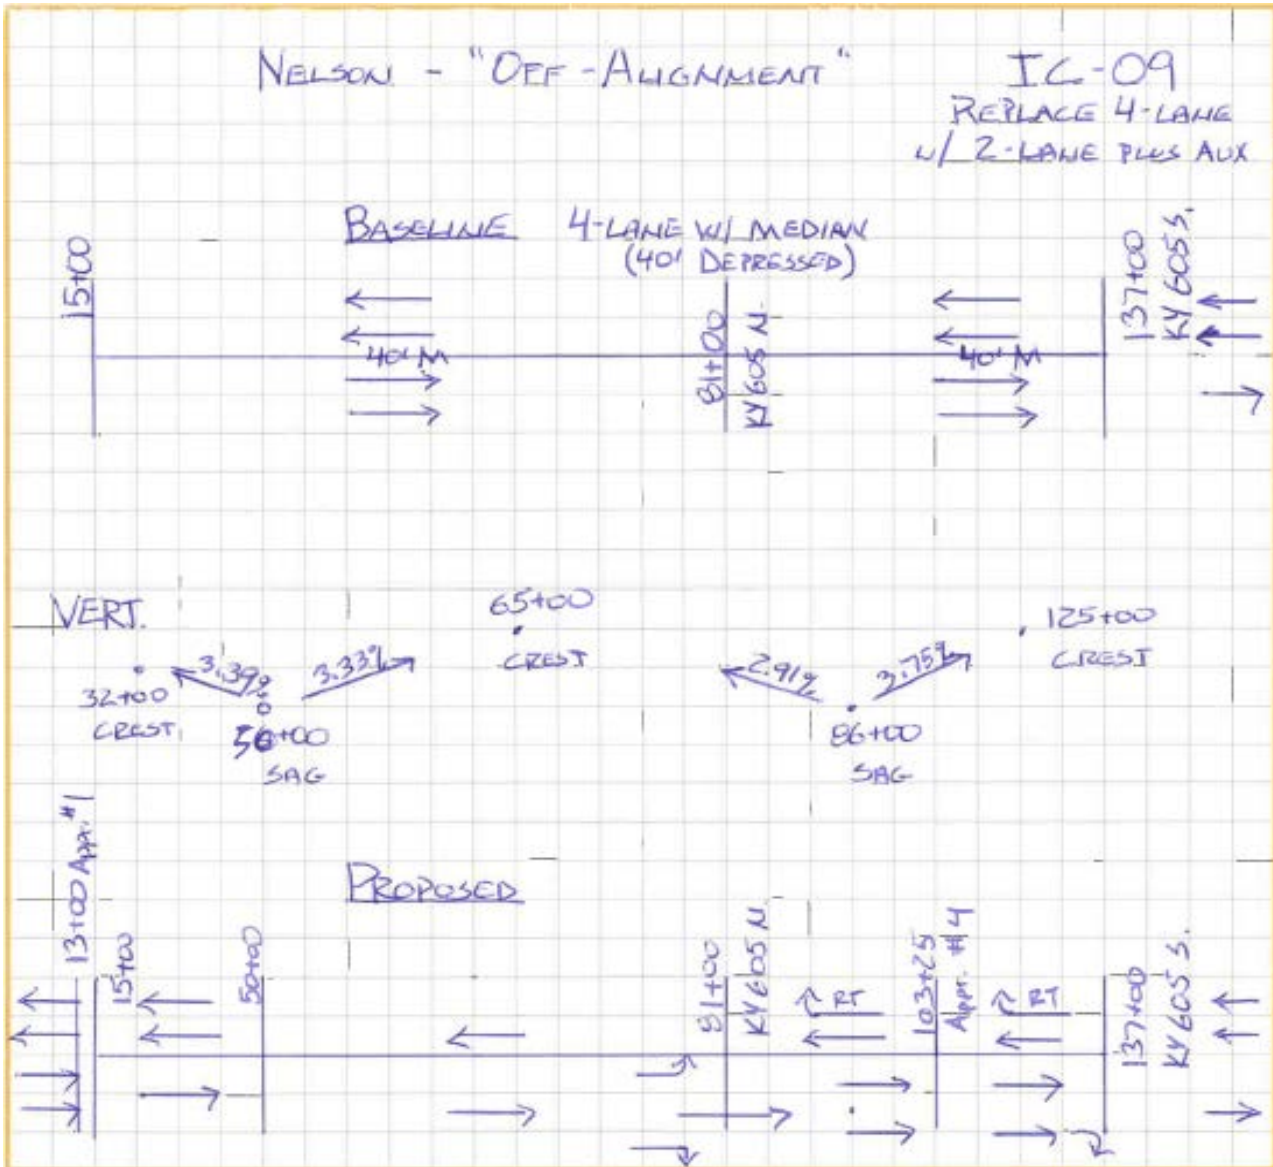 NELSON - "OFF-ALIGNMENT"
IC-09
REPLACE 4-LANE
W/ 2-LANE PLUS AUX
BASELINE 4-LANE W/ MEDIAN
(40' DEPRESSED)
15+00
40' M
81+00
KY 605 N.
40' M
137+00
KY 605 S.
VERT.
32+00
CREST
3.39%
50+00
SAG
3.33%
65+00
CREST
2.91%
86+00
SAG
3.75%
125+00
CREST
PROPOSED
13+00 APPR. #1
15+00
50+00
81+00
KY 605 N.
RT
103+25
APPR. #4
RT
137+00
KY 605 S.